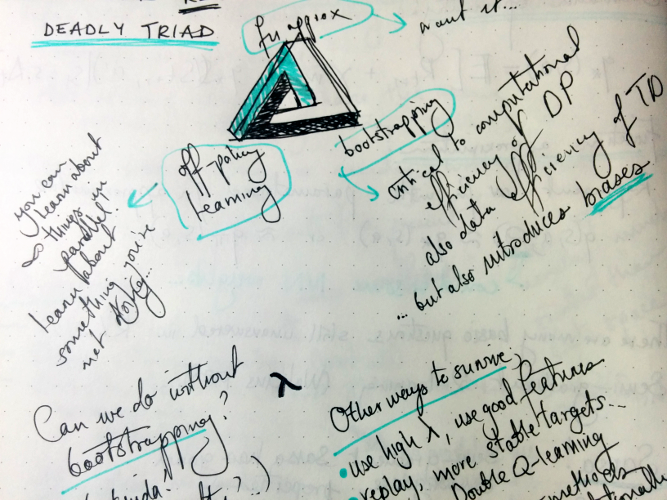 DEADLY TRIAD
fn approx
want it...
bootstrapping
critical to computational
efficiency of DP
also data efficiency of TD
... but also introduces biases
off-policy
learning
you can
learn about
things in
parallel
learn about
something you're
not
Can we do without
bootstrapping?
λ
Other ways to survive
• use high λ, use good features
• replay, more stable targets...
Double Q-learning
methods